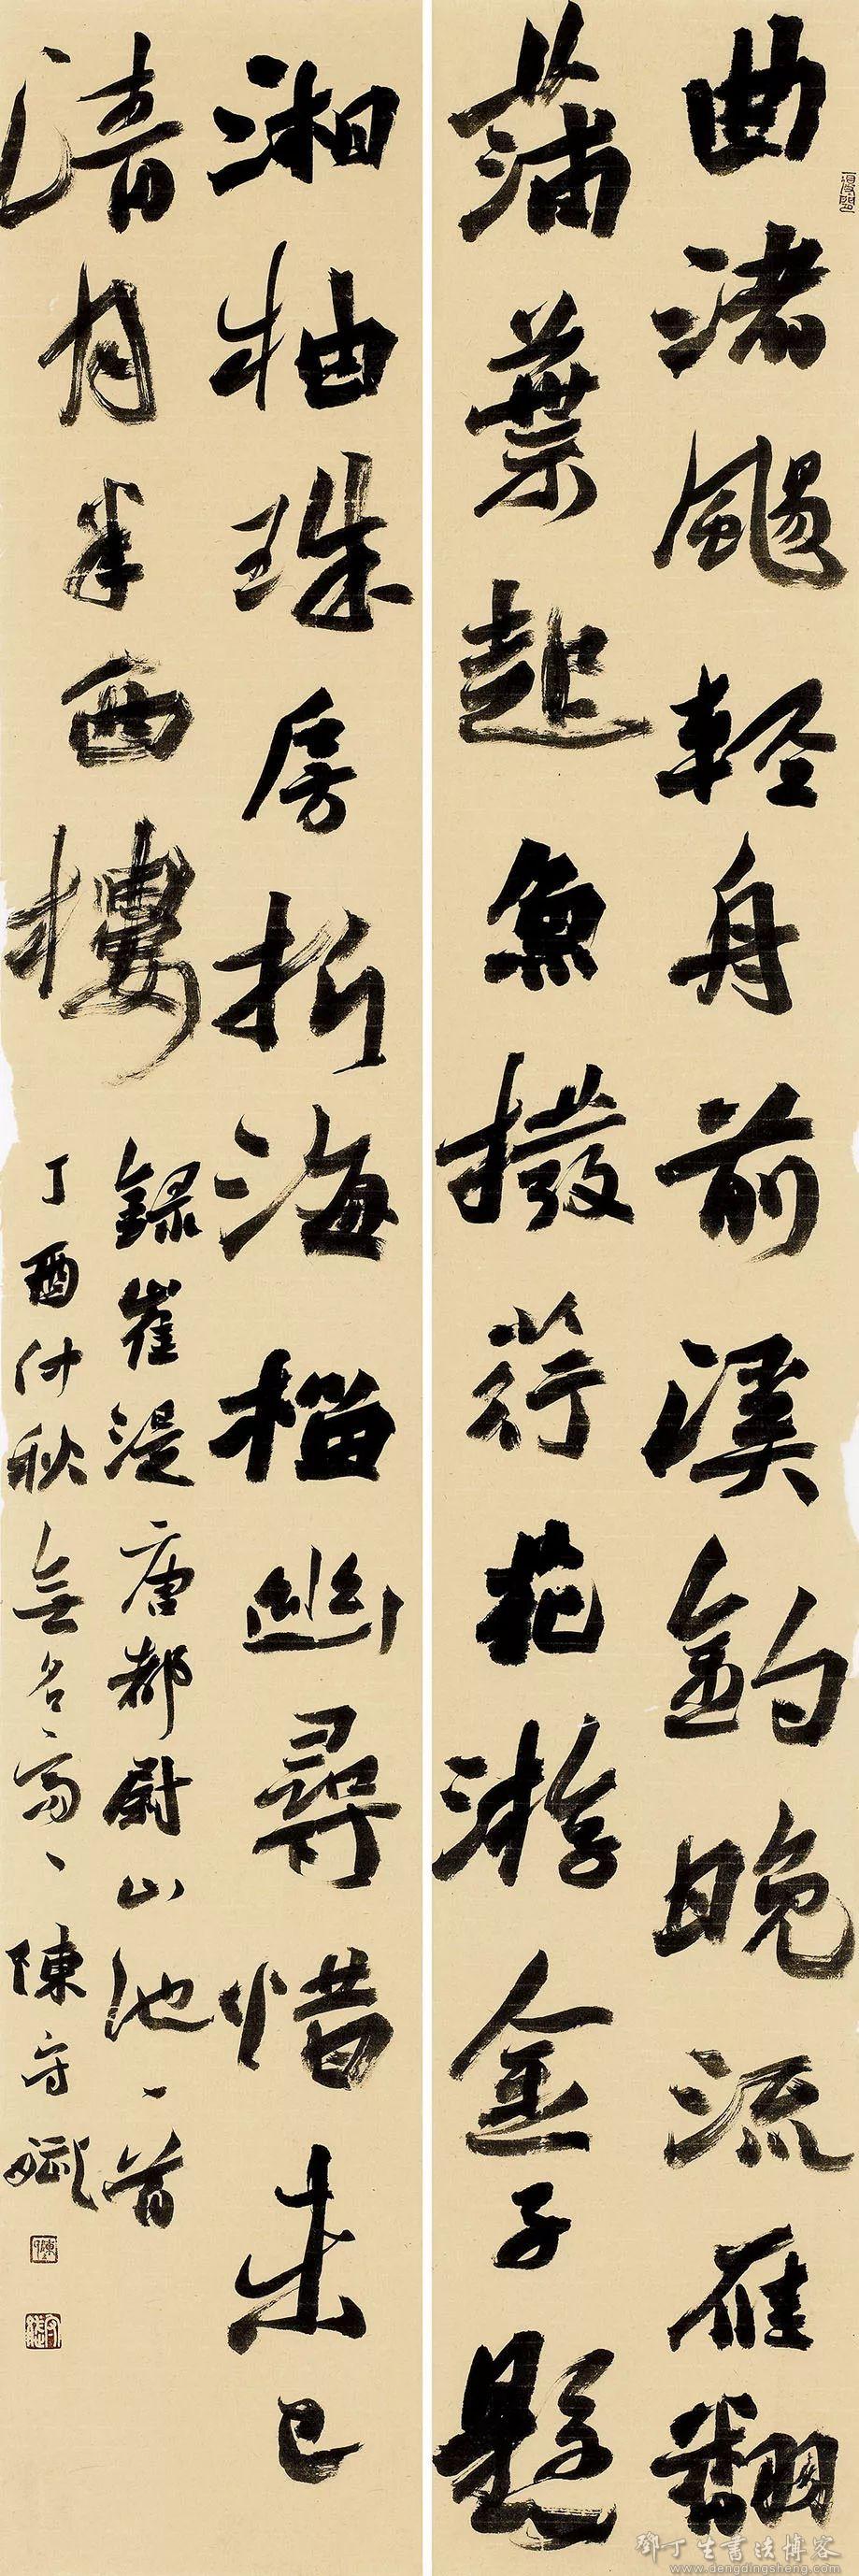 曲渚颺輕舟前溪釣晚流雁翻
蒲葉起魚撥荇花游金子懸
湘柚珠房折海榴幽尋惜未已
清月半西樓
錄崔湜唐都尉山池一首
丁酉仲秋無名陳守
鄧丁生書法博客
www.dengdingsheng.com